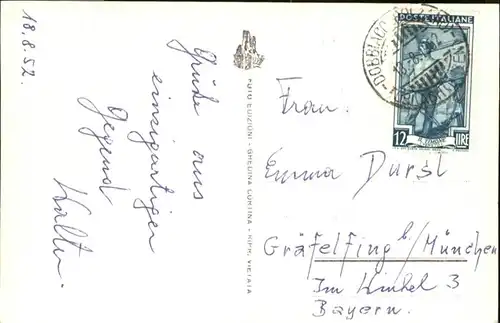 18.8.52.
Grüße aus
einzigartiger
Gegend
Walter.
FOTO EDIZIONI - GHEDINA CORTINA - RIPR. VIETATA
POSTE ITALIANE
12 LIRE
DOBBIACO
Frau.
Emma Durst
Gräfelfing b/München
Im Winkel 3
Bayern.